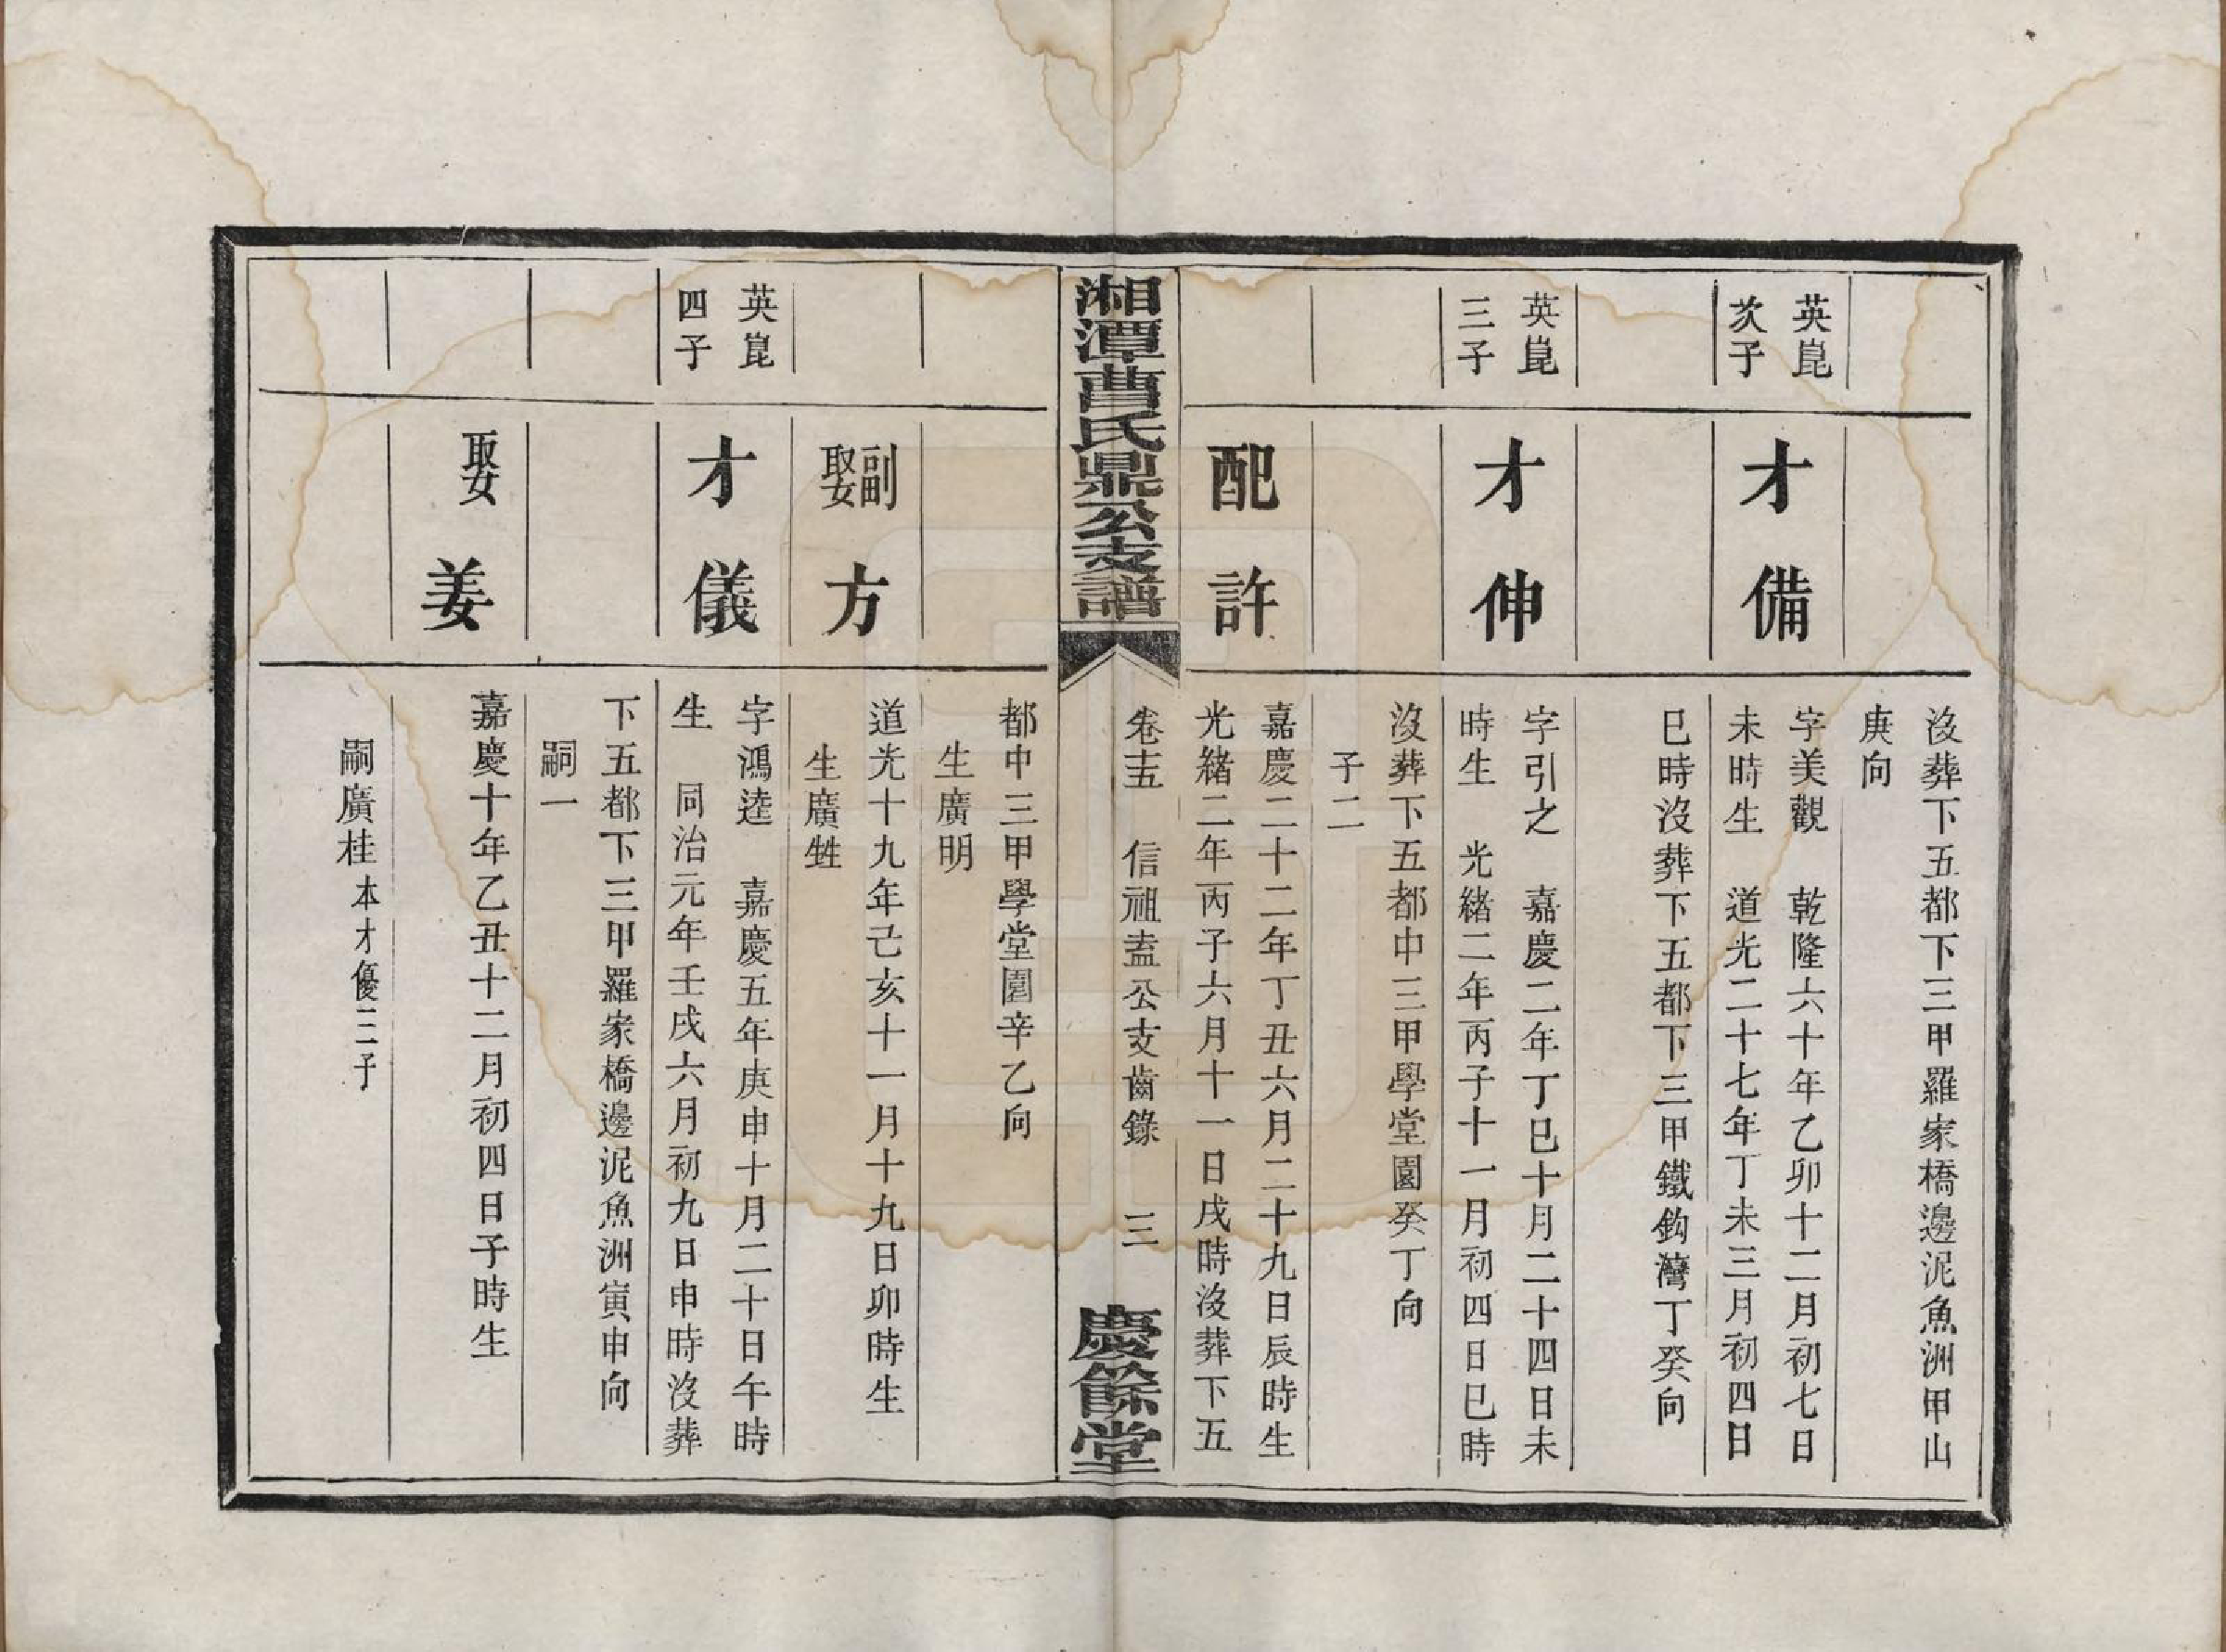 沒葬下五都下三甲羅家橋邊泥魚洲甲山
庚向
英崑
次子
才備
字美觀　乾隆六十年乙卯十二月初七日
未時生　道光二十七年丁未三月初四日
巳時沒葬下五都下三甲鐵鈎灣丁癸向
英崑
三子
才伸
字引之　嘉慶二年丁巳十月二十四日未
時生　光緒二年丙子十一月初四日巳時
沒葬下五都中三甲學堂園癸丁向
子二
配許
嘉慶二十二年丁丑六月二十九日辰時生
光緒二年丙子六月十一日戌時沒葬下五
湘潭曹氏鼎公支譜
卷十五　信祖盍公支齒錄　三
慶餘堂
都中三甲學堂園辛乙向
生廣明
副娶方
道光十九年己亥十一月十九日卯時生
生廣甡
英崑
四子
才儀
字鴻逵　嘉慶五年庚申十月二十日午時
生　同治元年壬戌六月初九日申時沒葬
下五都下三甲羅家橋邊泥魚洲寅申向
嗣一
娶姜
嘉慶十年乙丑十二月初四日子時生
嗣廣桂本才優三子